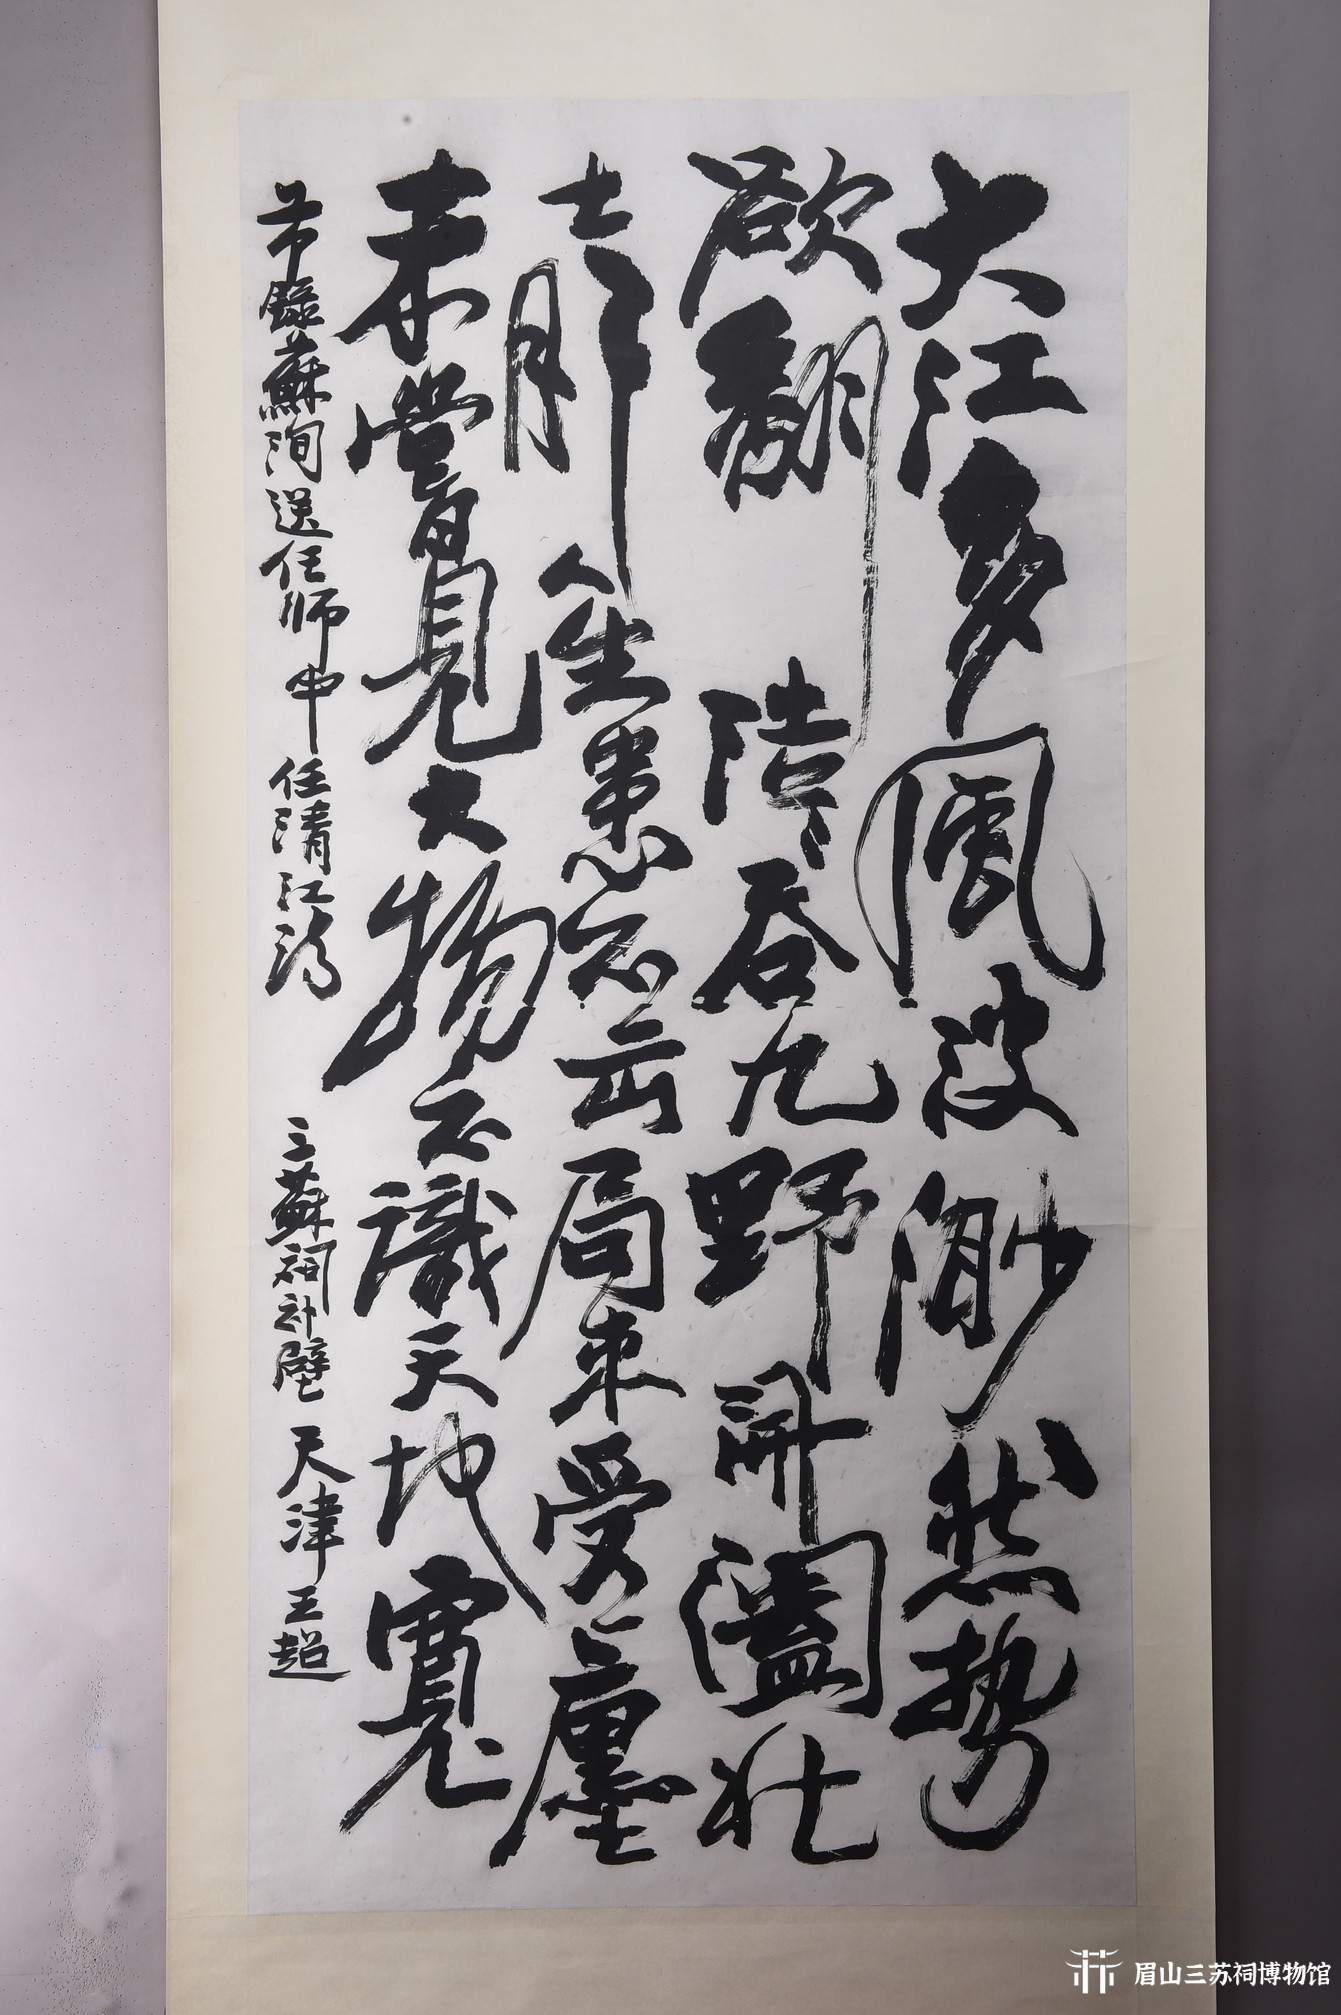 大江多風波渺然势
欲翻浩々吞九野開闔壮
士肝人生患不出局束受一廛
未嘗見大物不識天地寬
节錄蘇洵送任師中任清江詩 三蘇祠补壁 天津王超
眉山三苏祠博物馆